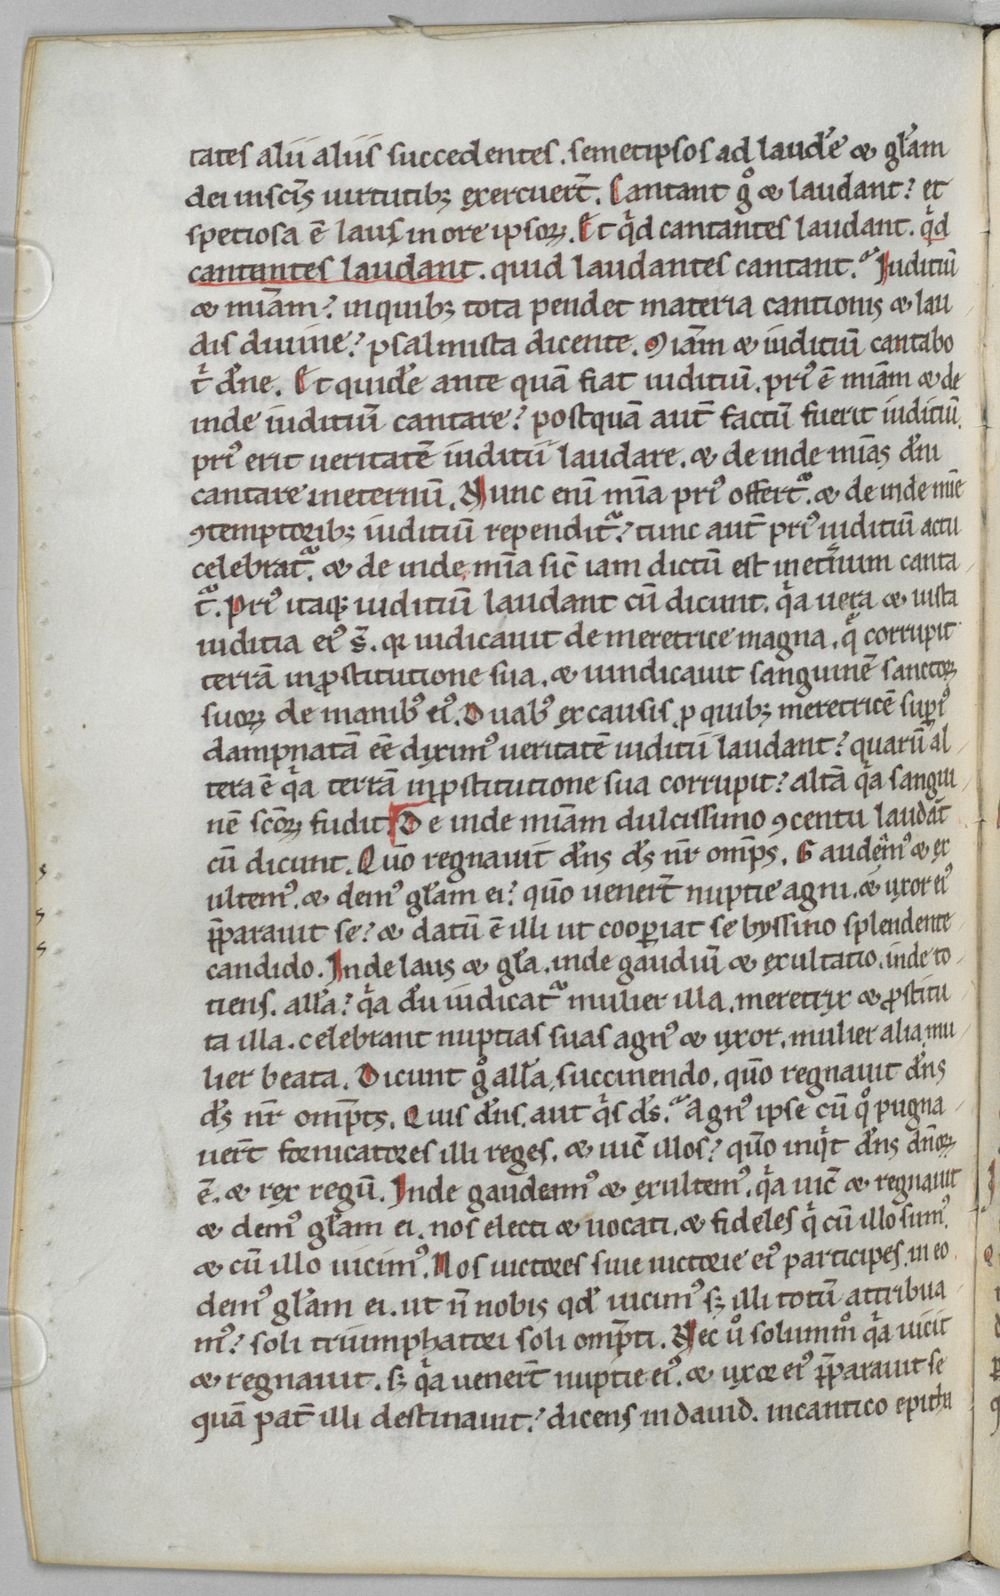 tates alii aliis succedentes. semetipsos ad laudē & gl̄am
dei in sc̄is uirtutibꝫ exercuer̄t. Cantant gͦ & laudant? et
spetiosa ē laus in ore ipsoꝝ. Et qͥd cantantes laudant. qͥd
cantantes laudant. quid laudantes cantant. Iuditiū
& mīam? in quibꝫ tota pendet materia cantionis & lau
dis diuine? psalmista dicente. Mīam & iuditiū cantabo
tͥ dn̄e. Et quidē ante quā fiat iuditiū. priꝰ ē mīam & de
inde iuditiū cantare? postquā aut̄ factū fuerit iuditiū.
priꝰ erit ueritatē iuditii laudare. & de inde mīas dn̄i
cantare in eternū. Nunc enī mīa priꝰ offert᷑. & de inde mīe
ꝯtemptoribꝫ iuditiū rependit᷑? tunc aut̄ priꝰ iuditiū actu
celebrat᷑. & de inde mīa sic̄ iam dictū est in et̄num canta
t᷑. Priꝰ itaqꝫ iuditiū laudant cū dicunt. qͥa uera & iusta
iuditia eiꝰ s̄. qꝛ iudicauit de meretrice magna. q̄ corrupit
terrā in ꝓstitutione sua. & uindicauit sanguinē sanctoꝝ
suoꝝ de manibꝰ eiꝰ. Duabꝰ ex causis ꝓ quibꝫ meretricē supiꝰ
dampnatā eē diximꝰ ueritatē iuditii laudant? quarū al
tera ē qͥa terrā in ꝓstitutione sua corrupit? altā qͥa sangui
nē sc̄oꝝ fudit. De inde mīam dulcissimo ꝯcentu laudāt
cū dicunt. Qm̄o regnauit dn̄s dꝰs nr̄ omp̄s. Gaudem̄ꝰ & ex
ultemꝰ. & demꝰ gl̄am ei? qm̄o uener̄t nuptie agni. & uxor eiꝰ
p̄parauit se? & datū ē illi ut cooꝑiat se byssino splendente
candido. Inde laus & gl̄a. inde gaudiū & exultatio. inde to
tiens. all̄a? qͥa dū iudicat᷑ mulier illa. meretrix & ꝓstitu
ta illa. celebrant nuptias suas agnꝰ & uxor. mulier alia. mu
lier beata. Dicunt gͦ all̄a succinendo. qm̄o regnauit dn̄s
ds̄ nr̄ omp̄ts. Quis dn̄s. aut qͥs ds̄. Agnꝰ ipse cū qͦ pugna
uer̄t fornicatores illi reges. & uic̄ illos? qm̄o inqͥt dn̄s dn̄oꝝ
ē. & rex regū. Inde gaudemꝰ & exultemꝰ. qͥa uic̄ & regnauit
& demꝰ gl̄am ei. nos electi & uocati. & fideles qͥ cū illo sumꝰ.
& cū illo uicimꝰ. Nos uictores sui uictorie eiꝰ participes. in eo
demꝰ gl̄am ei. ut n̄ nobis qd̄ uicimꝰ sꝫ illi totū attribua
mꝰ? soli triumphatori soli omp̄ti. Nec uͦ solummͦ qͥa uicit
& regnauit. sꝫ qͥa uener̄t nuptie eiꝰ. & uxor eiꝰ p̄parauit se
quā pat̄ illi destinauit? dicens in dauid. in cantico epitha